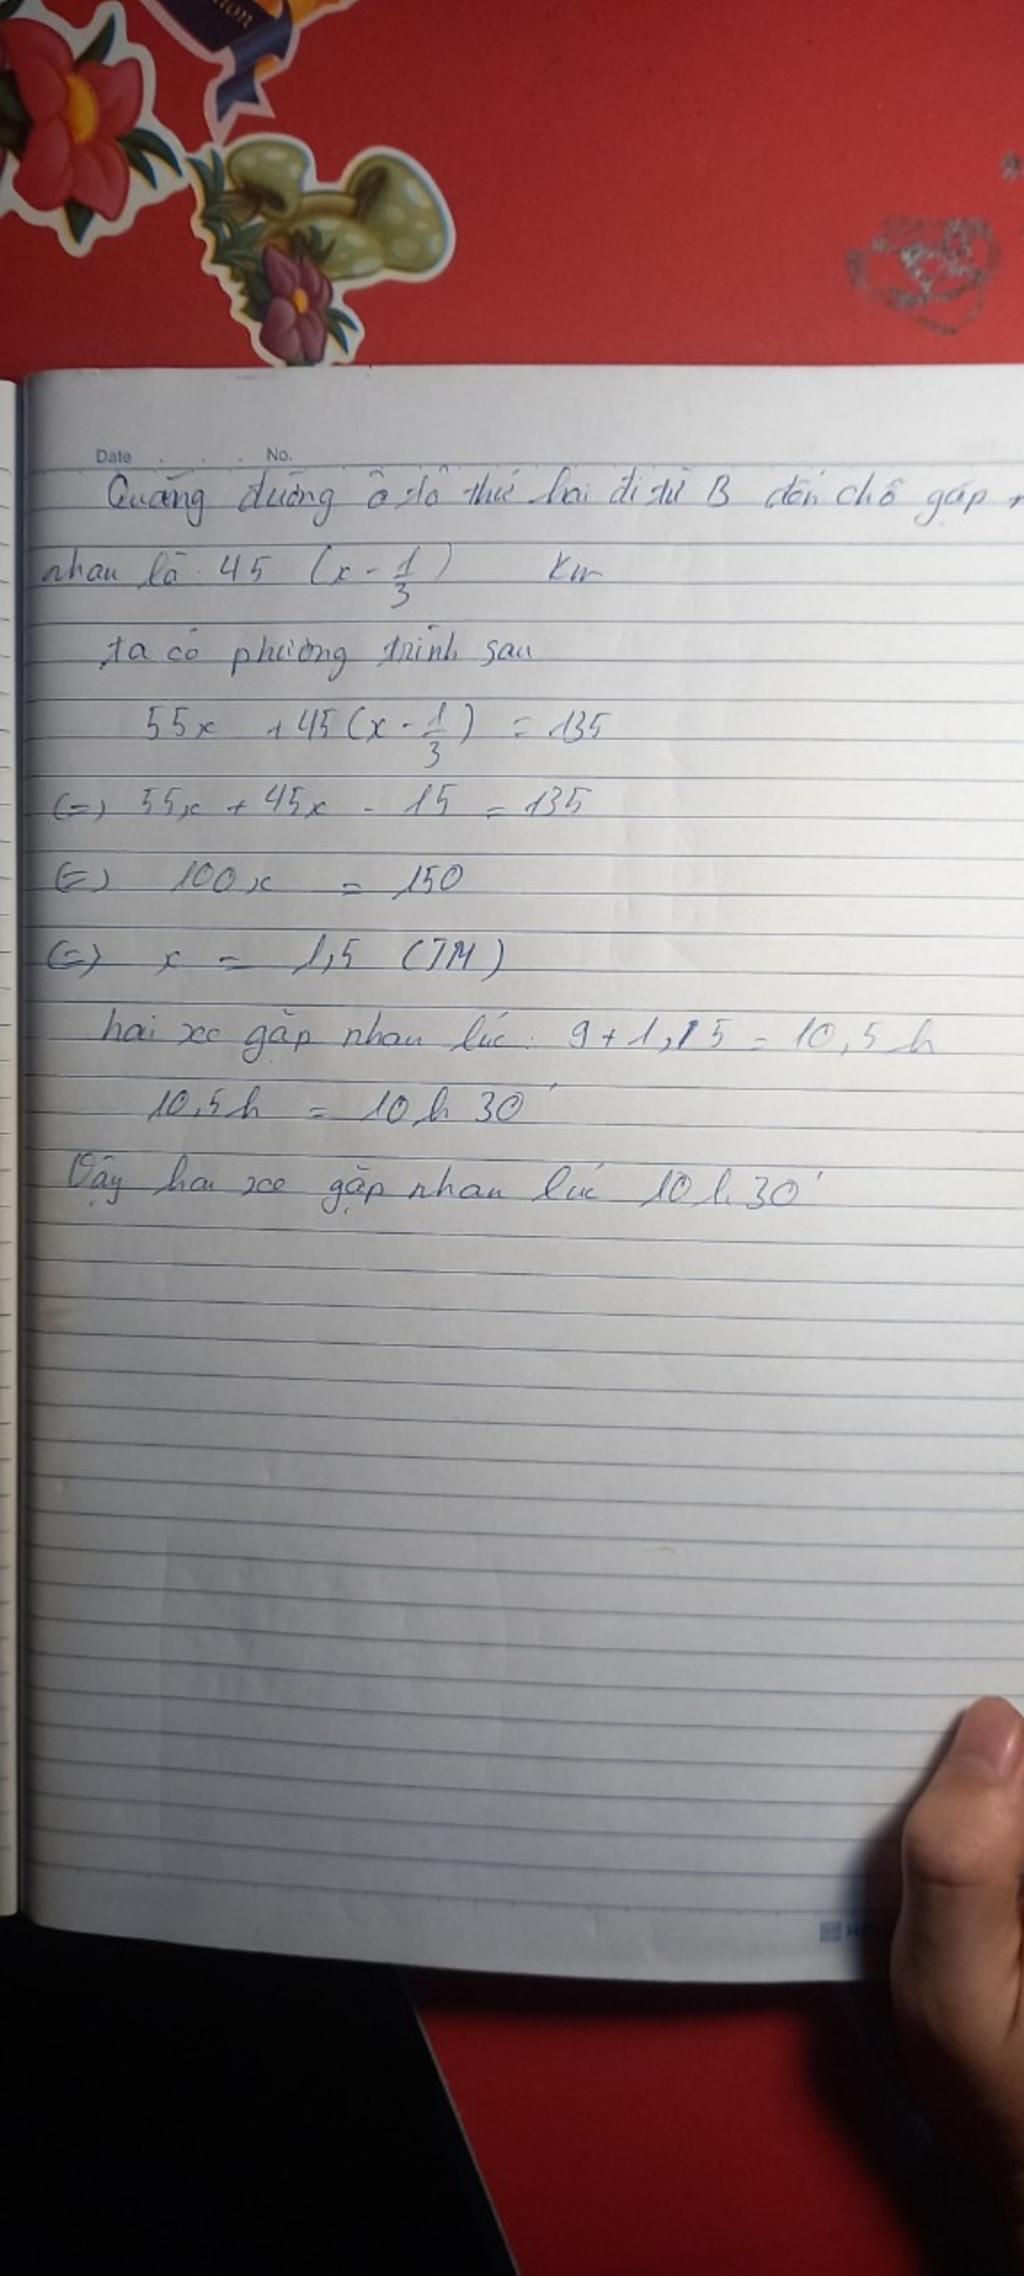 Date No.
Quãng đường ô tô thứ hai đi từ B đến chỗ gặp
nhau là 45 (x - 1/3) km
ta có phương trình sau
55x + 45(x - 1/3) = 135
(=) 55x + 45x - 15 = 135
(=) 100x = 150
(=) x = 1,5 (TM)
hai xe gặp nhau lúc: 9 + 1,15 = 10,5 h
10,5h = 10h 30'
Vậy hai xe gặp nhau lúc 10h 30'